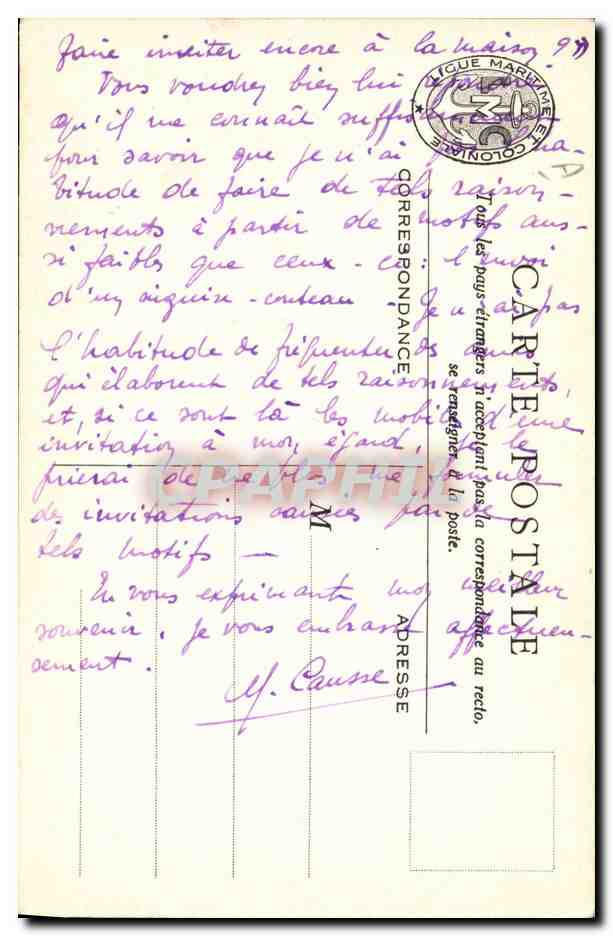 faire inviter encore à la maison ? »
Vous voudrez bien lui
qu'il me connaît
pour savoir que je n'ai ha-
bitude de faire de tels raison-
nements à partir de motifs aus-
si faibles que ceux-ci : l'envoi
d'un aiguise-couteau. Je n'ai pas
l'habitude de fréquenter des
qui élaborent de tels raisonnements,
et, si ce sont là les mobiles d'une
invitation à mon égard, je le
prierai de ne plus me formuler
des invitations par de
tels motifs —
En vous exprimant mon meilleur
souvenir, je vous embrasse affectueu-
sement.
M. Causse
LIGUE MARITIME ET COLONIALE
LMC
CARTE POSTALE
Tous les pays étrangers n'acceptant pas la correspondance au recto,
se renseigner à la poste.
CORRESPONDANCE
ADRESSE
M
CPAPHIL